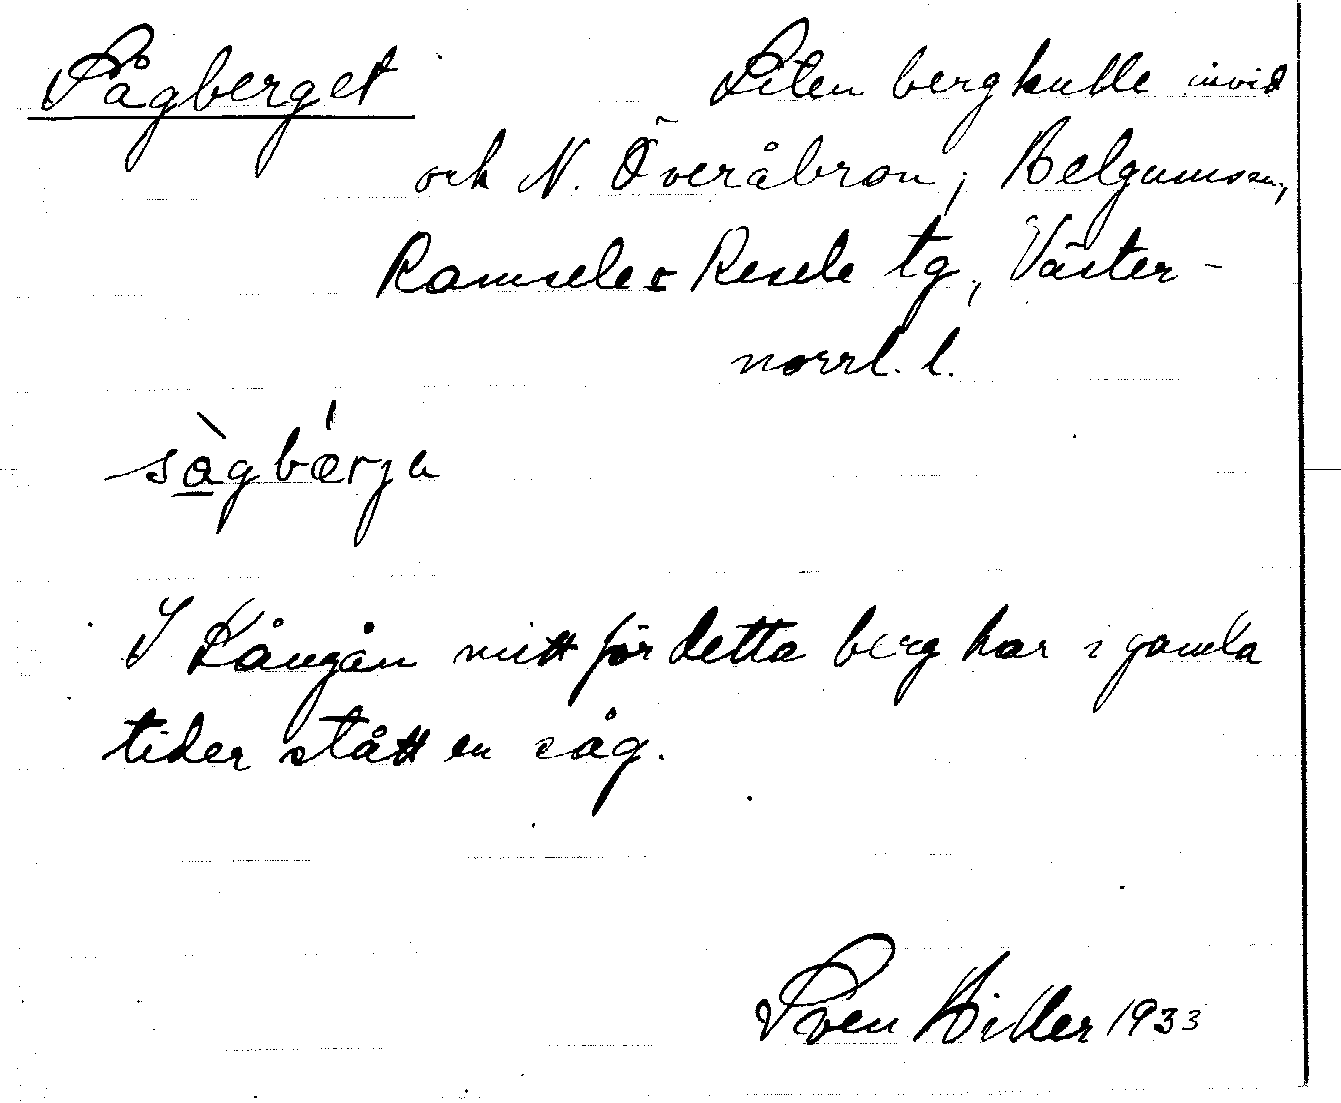 Sågberget Liten bergkulle invid
och N. Överåbron, Helgumssn,
Ramsele o Resele tg, Väster-
norrl. l.
sàgbǽrja
I Kångån mitt för detta berg har i gamla
tider stått en såg.
Sven Hiller 1933